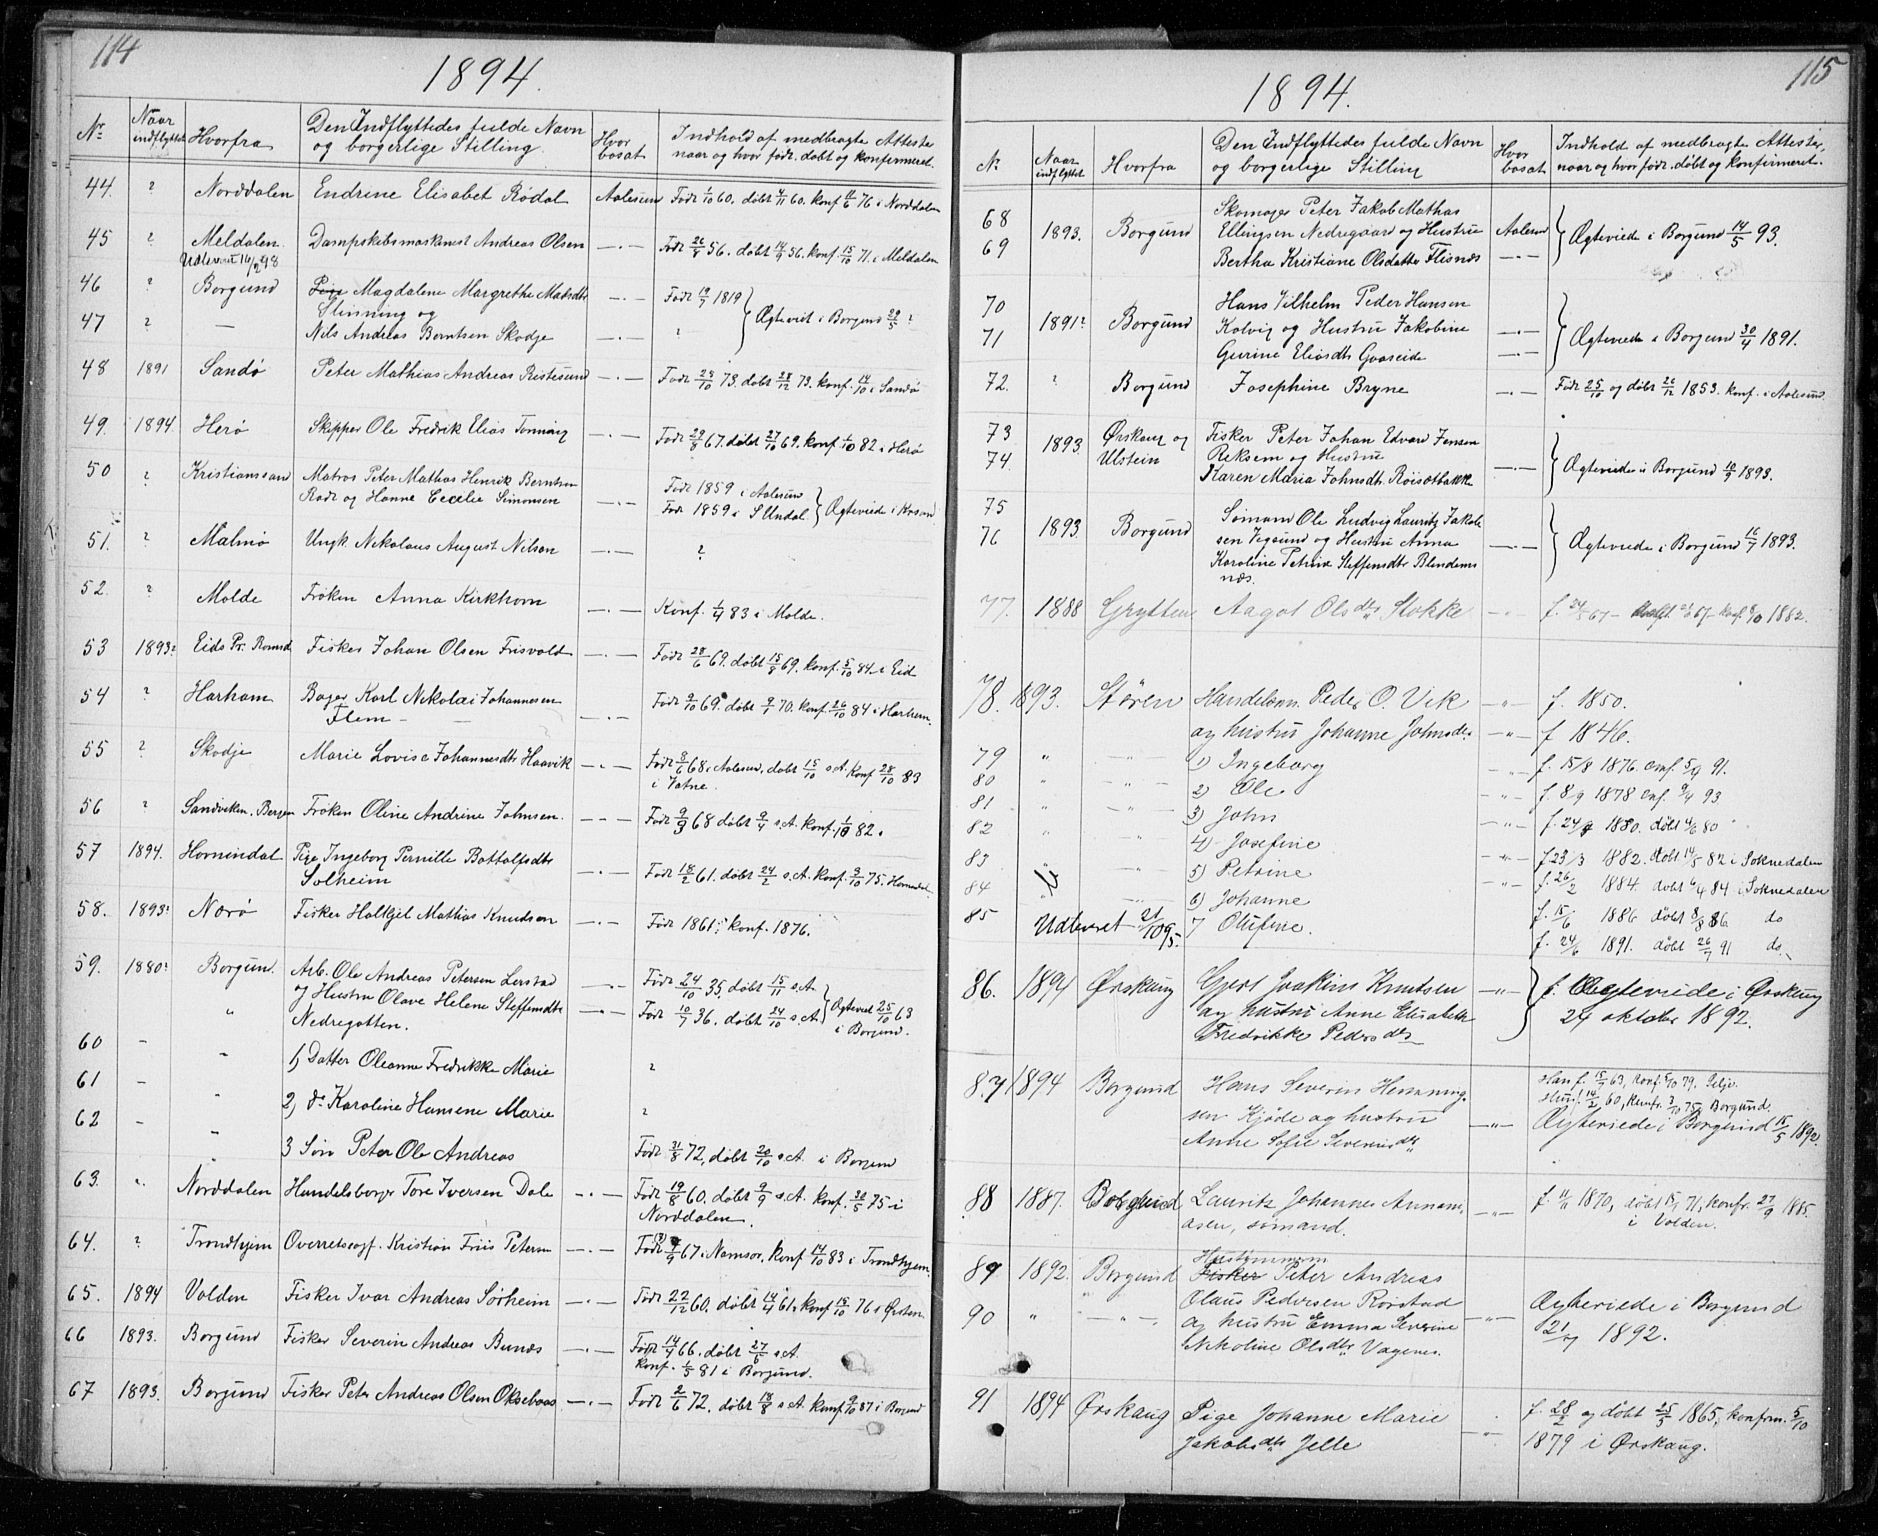 114
1894.
Nr. Naar indflyttet Hvorfra Den Indflyttedes fulde Navn og borgerlige Stilling. Hvor bosat Indhold af medbragte Attester naar og hvor født, døbt og konfirmeret.
44. ? Norddalen Endrine Elisabet Rødal Aalesund Født 1/10 60. døbt 4/11 60. konf. 11/6 76 i Norddalen
45 ? Meldalen Dampskibsmaskinist Andreas Olsen —·— Født 26/8 56. døbt 14/9 56. konf. 15/10 71. i Meldalen
Udleveret 16/2 98
46 ? Borgund Pige Magdalene Margrethe Matsdtr —·— Født 19/7 1819
Slinning og } Ægteviet i Borgund 29/5 ?
47 ? — Nils Andreas Berntsen Skodje —·— ?
48 1891 Sandø Peter Mathias Andreas Ristesund —·— Født 29/10 73. døbt 28/12 73. konf. 14/10 i Sandø
49. 1894. Herø Skipper Ole Fredrik Elias Tonning —·— Født 29/8 67. døbt 27/10 69. konf. 1/10 82 i Herø
50 ? Kristianssand Matros Peter Mathias Henrik Berntsen Født 1859 i Aalesund
Rode og Hanne Cecilie Simonsen —·— Født 1859 i S. Undal } Ægteviede i Krsand
51. ? Malmø Ungk. Nikolaus August Nilson —·— ?
52. ? Molde Frøken Anna Kirkhorn —·— Konf. 1/4 83 i Molde.
53 1893? Eids Pr. Romsd Fisker Johan Olsen Frisvold —·— Født 28/6 69. døbt 15/8 69. konf. 5/10 84. i Eid
54 ? Harham Bager Karl Nikolai Johannesen Født 9/10 69. døbt 9/1 70. konf. 26/10 84 i Harham.
Flem — —·—
55 ? Skodje Marie Lovise Johannesdtr Haavik —·— Født 8/6 68 i Aalesund. døbt 15/10 s.A. Konf 28/10 83
i Vatne.
56 ? Sandviken, Bergen Frøken Oline Andrine Johnsen. —·— Født 9/3 68 døbt 9/4 s.A. konf. 1/10 82.
57 1894. Hornindal Pige Ingeborg Pernille Bottolfsdtr
Solheim —·— Født 18/2 61. døbt 24/2 s.A. konf. 3/10 75. Hornindal
58. 1893? Nærø Fisker Halkjel Mathias Knudsen —·— Født 1861; konf. 1876.
59. 1880? Borgund. Arb. Ole Andreas Petersen Lerstad —·— Født 24/10 35. døbt 15/11 s.A.
" og Hustru Olave Helene Steffensdtr —·— Født 10/7 36. døbt 24/10 s.A. } Ægteviet 25/10 63
Nedregotten. i Borgund.
60 — " 1) Datter Oleanne Fredrikke Marie ?
61 — " 2) do Karoline Hansene Marie ?
62 — " 3 Søn Peter Ole Andreas Født 31/8 72, døbt 20/10 s.A. i Borgund
63. ". Norddalen Handelsborger Tore Iversen Dale —·— Født 19/8 60. døbt 9/9 s.A. konf. 30/5 75 i
Norddalen.
64. ? Trondhjem Overretssagf. Kristian Friis Petersen —·— Født 7/9 67 i Namsos. konf 14/10 83 i Trondhjem.
65. 1894 Volden Fisker Ivar Andreas Sørheim —·— Født 22/12 60. døbt 14/4 61. konf 15/10 76 i Ørsten.
66 1893. Borgund Fisker Severin Andreas Bunes —·— Født 14/4 66. døbt 27/6 s.A.
konf. 1/5 81 i Borgund.
67 1893. Borgund Fisker Peter Andreas Olsen Oksebaas —·— Født 2/6 72. døbt 18/8 s.A. konf 9/10 87 i Borgund
115
1894.
Nr. Naar indflyttet Hvorfra Den Indflyttedes fulde Navn og borgerlige Stilling Hvor bosat Indhold af medbragte Attester, naar og hvor født, døbt og konfirmeret.
68 Skomager Peter Jakob Mathias
1893. Borgund Ellingsen Nedregaard og Hustru Aalesund } Ægteviede i Borgund 14/5 93.
69 Bertha Kristiane Olsdatter Flisnes —·—
70 Hans Vilhelm Peder Hansen
1891? Borgund Kolvig og Hustru Jakobine —·— } Ægteviede i Borgund 30/4 1891.
71 Gurine Eliasdtr Gaaseide —·—
72. ? Borgund Josephine Bryne —·— Født 25/10 og døbt 26/12 1853. konf. i Aalesund.
73 Ørskaug og Fisker Peter Johan Edvard Jensen
1893. Ulstein Reksem og Hustru —·— } Ægteviede i Borgund 10/9 1893.
74. Karen Maria Johnsdtr. Røisetbakk
75 Sømand Ole Ludvig Lauritz Jakob
1893. Borgund sen Vegsund og Hustru Anna —·— } Ægteviede i Borgund 16/7 1893.
76 Karoline Petrine Steffensdtr Blindeims
nes.
77. 1888 Grytten Aagot Olsdtr Stokke —"— f. 24/5 67 — døbt 21/6 67 — konf 8/10 1882.
78. 1893. Støren Handelsm. Peder O. Vik —"— f. 1850.
og hustru Johanne Johnsdr. —"— f 1846.
79 " —"— 1) Ingeborg —"— f. 15/8 1876. conf. 5/9 91.
80 " —"— 2) Ole —"— f. 8/9 1878 conf. 9/4 93
81 " —"— 3) John —"— f. 24/4 1880. døbt 4/6 80
82 " —"— 4) Josefine —"— f 23/3 1882. døbt 14/5 82 i Soknedalen
83 " —"— 5) Petrine —"— f. 26/2 1884. døbt 6/4 84 i Soknedalen
84 " —"— 6) Johanne f. 15/6 1886 døbt 8/8 86 do
85 Udleveret 21/10 95. 7 Olufine. f. 24/6 1891. døbt 26/7 91 do.
86. 1894 Ørskaug Gjert Joakim Knudsen —"— } f. Ægteviede i Ørskaug
og hustru Anne Elisabeth 24 oktober 1892.
Fredrikke Pedersdtr
87 1894 Borgund Hans Severin Henning- Han f. 15/7 63, konf. 5/10 79,
sen Kjøde og hustru Hust. 14/2 60, konfr. 3/10 75, Borgund.
Anne Sofie Severinsdtr —"— Ægteviede i Borgund 15/5 1892.
88 1887. Borgund Lauritz Johannes Annani- —"— f. 11/11 1870, døbt 15/1 71, konfr. 27/9 1885.
asen, sømand. i Volden.
Hustømmerm
89 1892. Borgund Fisker Peter Andreas
Olaus Pedersen Rørstad Ægteviede i Borgund
90 " —"— og hustru Emma Severine —"— 21/7 1892.
Nikoline Olsdtr Vagenes.
91 1894 Ørskaug Pige Johanne Marie f. 28/2 og døbt 25/5 1865, konfrm. 5/10
Jakobsdtr Jelle —"— 1879 i Ørskaug.